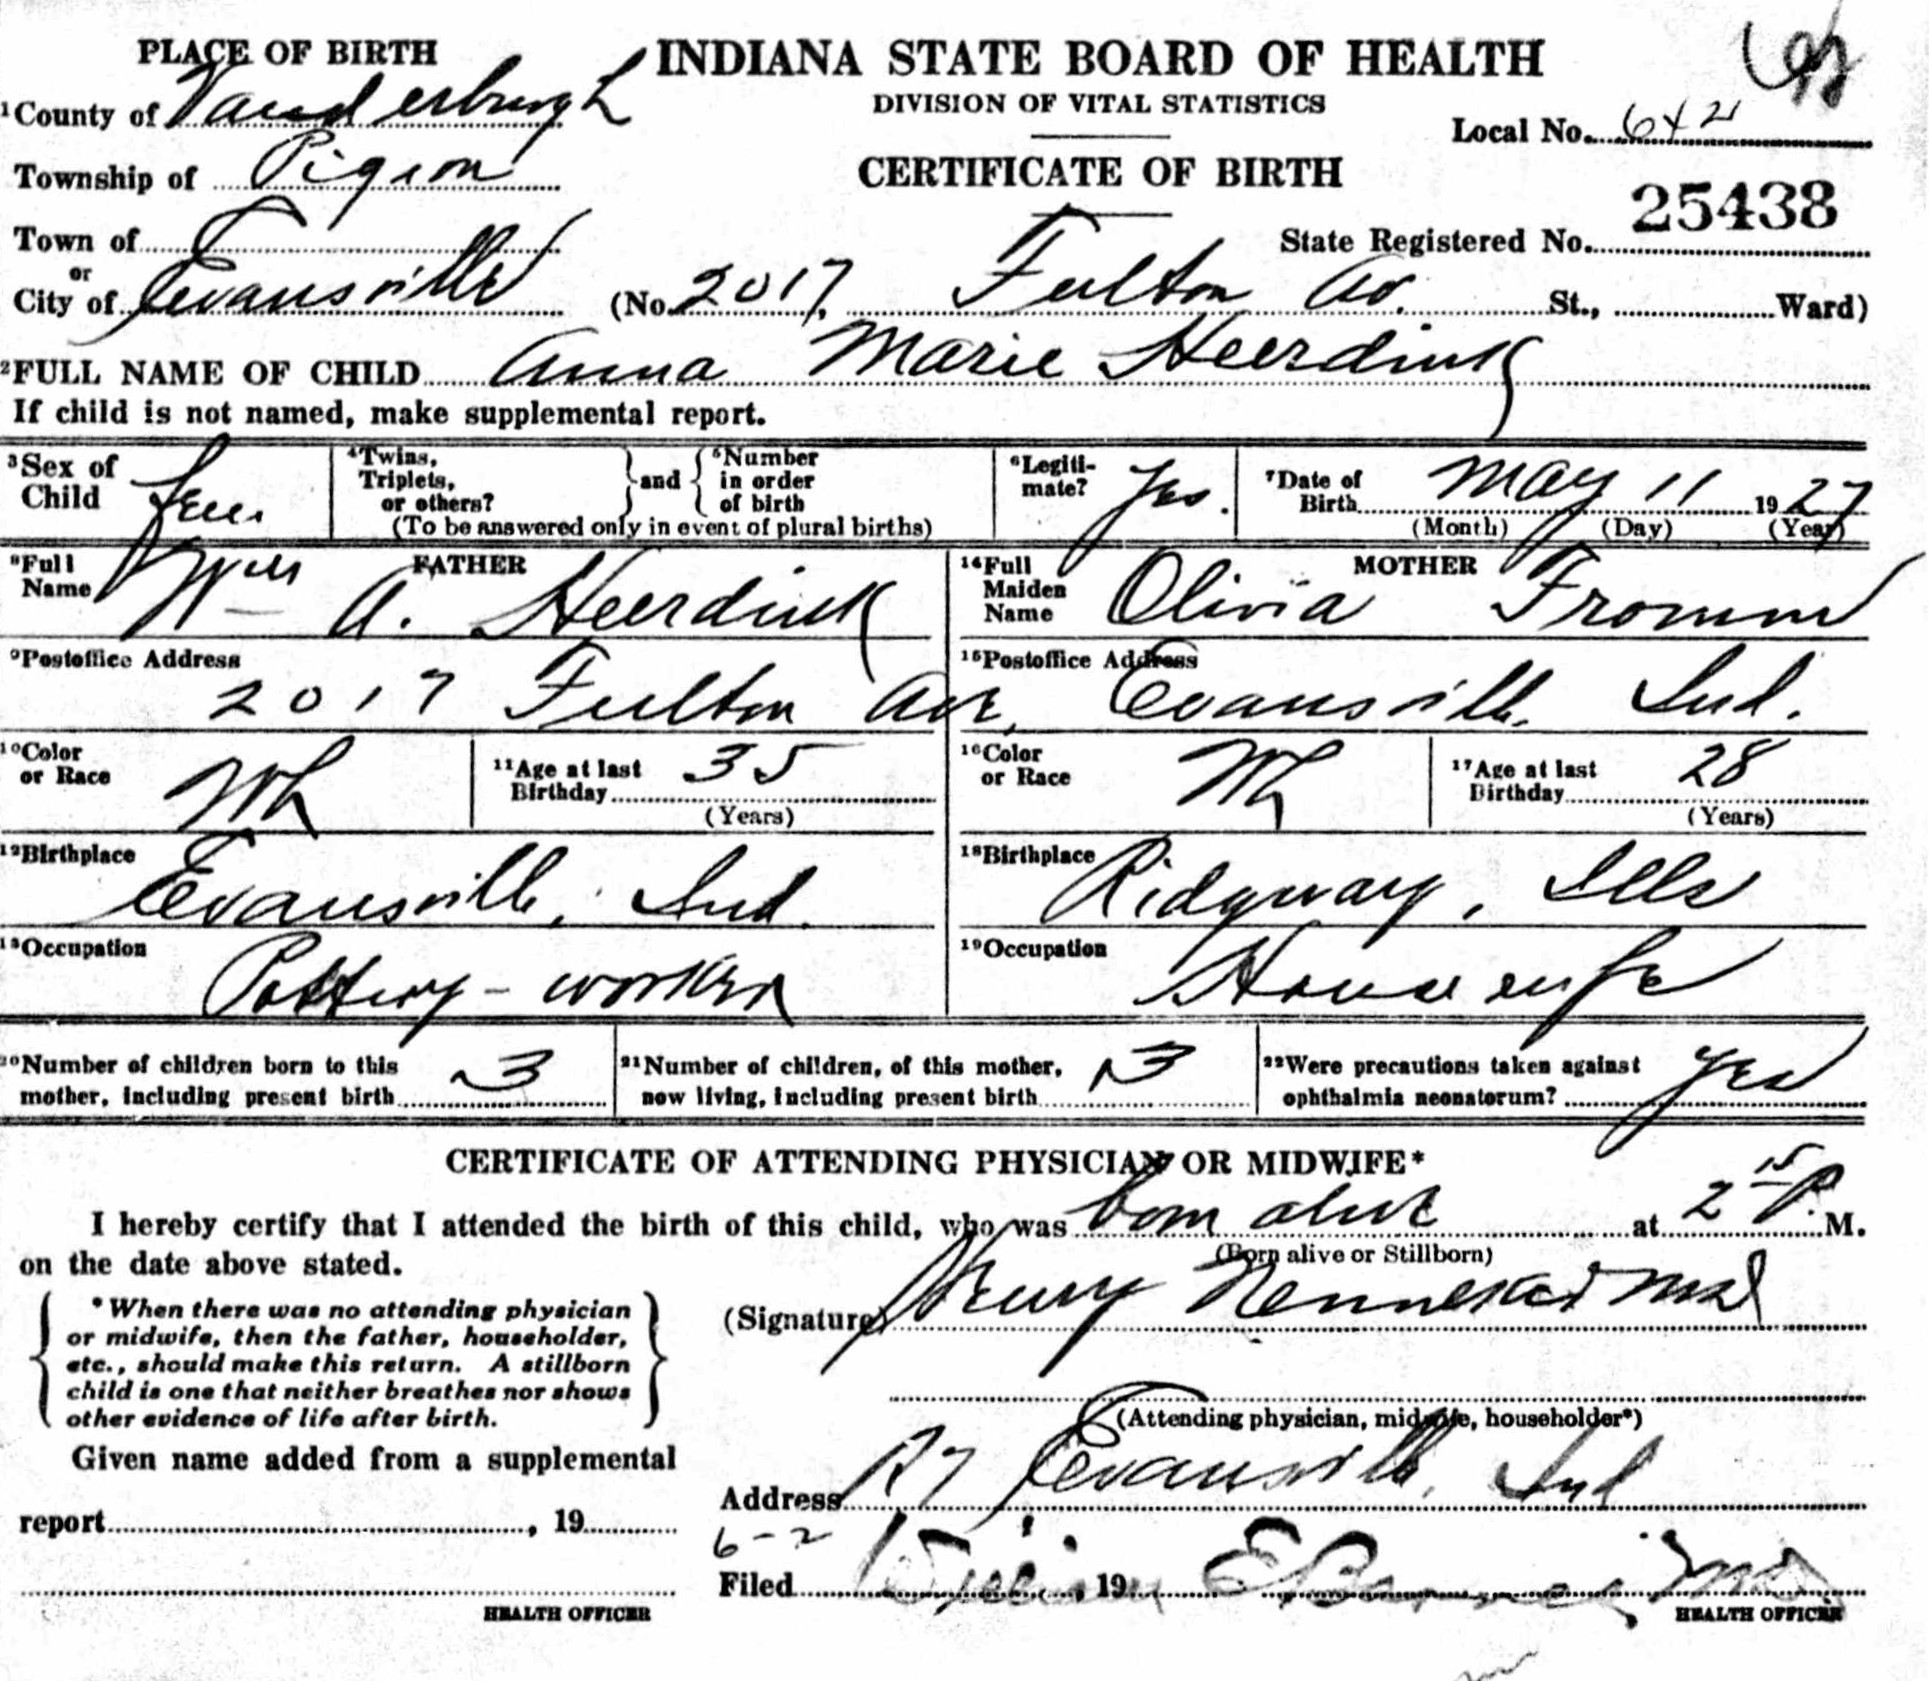 PLACE OF BIRTH
INDIANA STATE BOARD OF HEALTH
DIVISION OF VITAL STATISTICS
1 County of Vanderburgh
Local No. 642
Township of Pigeon
CERTIFICATE OF BIRTH
25438
State Registered No.
Town of
or
City of Evansville (No. 2017, Fulton Av. St., Ward)
2 FULL NAME OF CHILD Anna Marie Heerdink
If child is not named, make supplemental report.
3 Sex of Child Fem
4 Twins, Triplets, or others? } and { 5 Number in order of birth
(To be answered only in event of plural births)
6 Legiti-mate? Yes.
7 Date of Birth May 11 1927
(Month) (Day) (Year)
FATHER
8 Full Name Wm A. Heerdink
MOTHER
14 Full Maiden Name Olivia Fromm
9 Postoffice Address
2017 Fulton Ave,
15 Postoffice Address
Evansville, Ind.
10 Color or Race Wh
11 Age at last Birthday 35
(Years)
16 Color or Race Wh
17 Age at last Birthday 28
(Years)
12 Birthplace
Evansville, Ind.
18 Birthplace
Ridgway, Ills
13 Occupation
Pottery-worker
19 Occupation
Housewife
20 Number of children born to this mother, including present birth 3
21 Number of children, of this mother, now living, including present birth 3
22 Were precautions taken against ophthalmia neonatorum? Yes
CERTIFICATE OF ATTENDING PHYSICIAN OR MIDWIFE*
I hereby certify that I attended the birth of this child, who was born alive at 2 15 P. M.
(Born alive or Stillborn)
on the date above stated.
*When there was no attending physician
or midwife, then the father, householder,
etc., should make this return. A stillborn
child is one that neither breathes nor shows
other evidence of life after birth.
(Signature) Henry MD
(Attending physician, midwife, householder*)
Given name added from a supplemental
report , 19
HEALTH OFFICER
Address R7 Evansville, Ind
6-2
Filed 19
HEALTH OFFICER